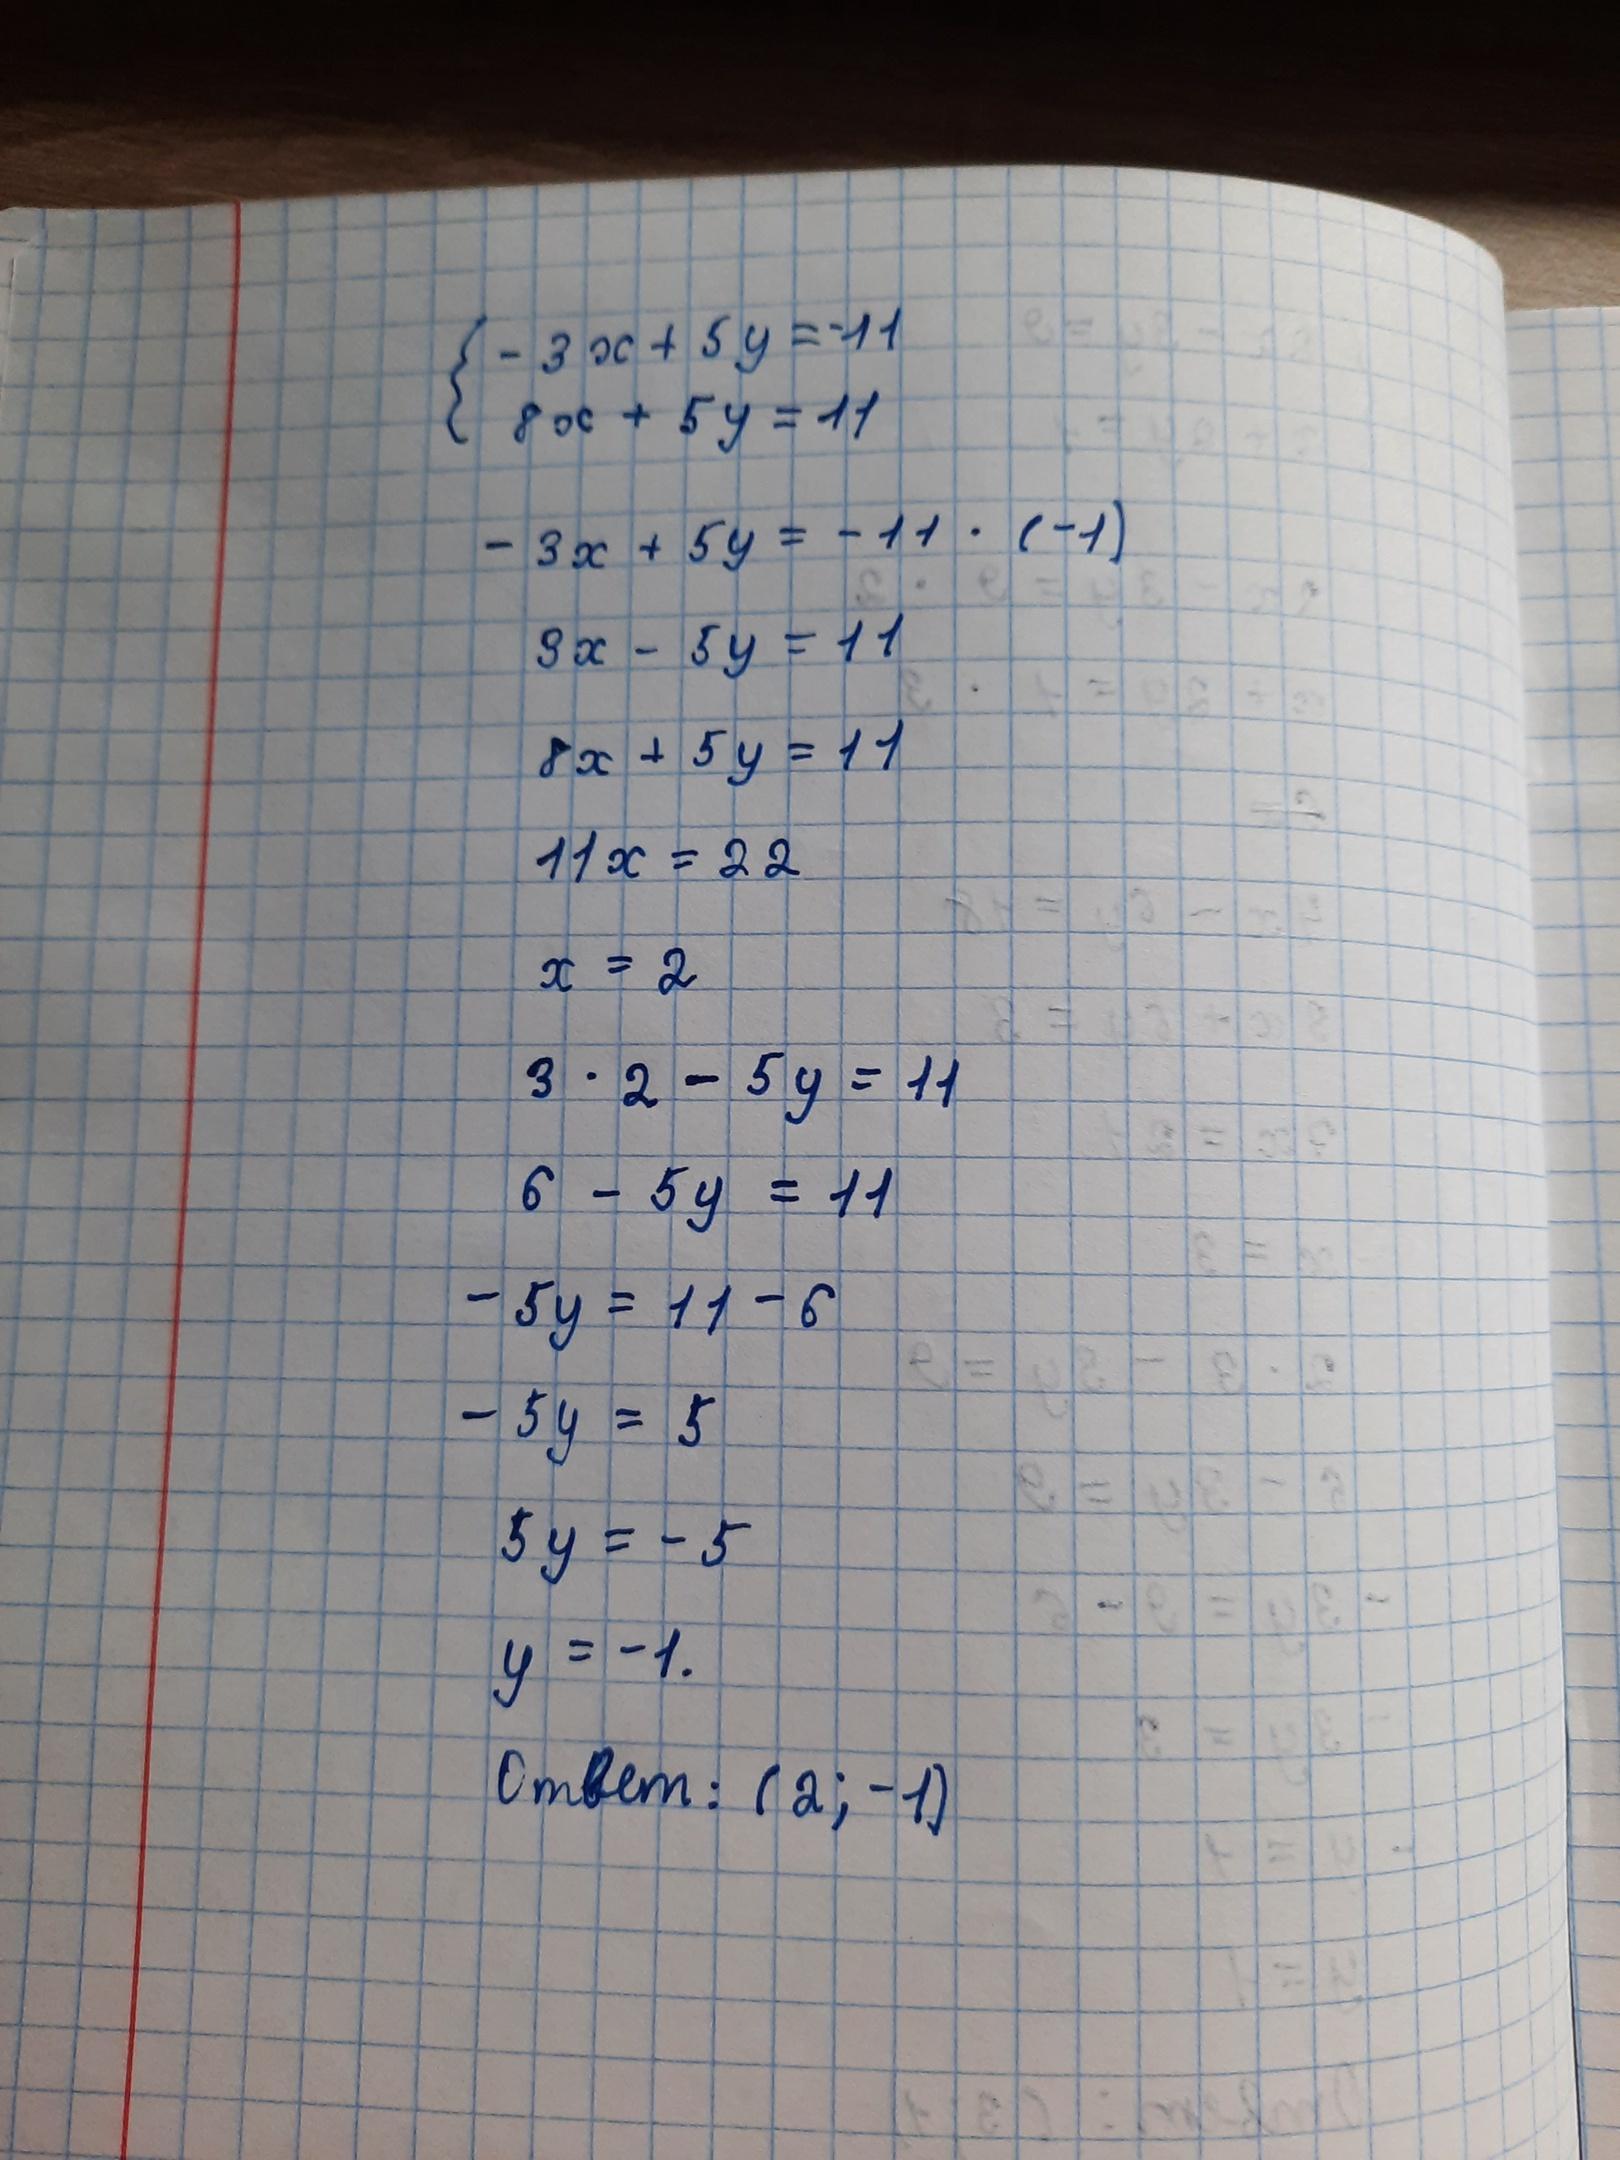 { - 3x + 5y = -11
8x + 5y = 11
- 3x + 5y = - 11 · (-1)
3x - 5y = 11
8x + 5y = 11
11x = 22
x = 2
3 · 2 - 5y = 11
6 - 5y = 11
- 5y = 11 - 6
- 5y = 5
5y = - 5
y = -1.
Ответ: (2; -1)